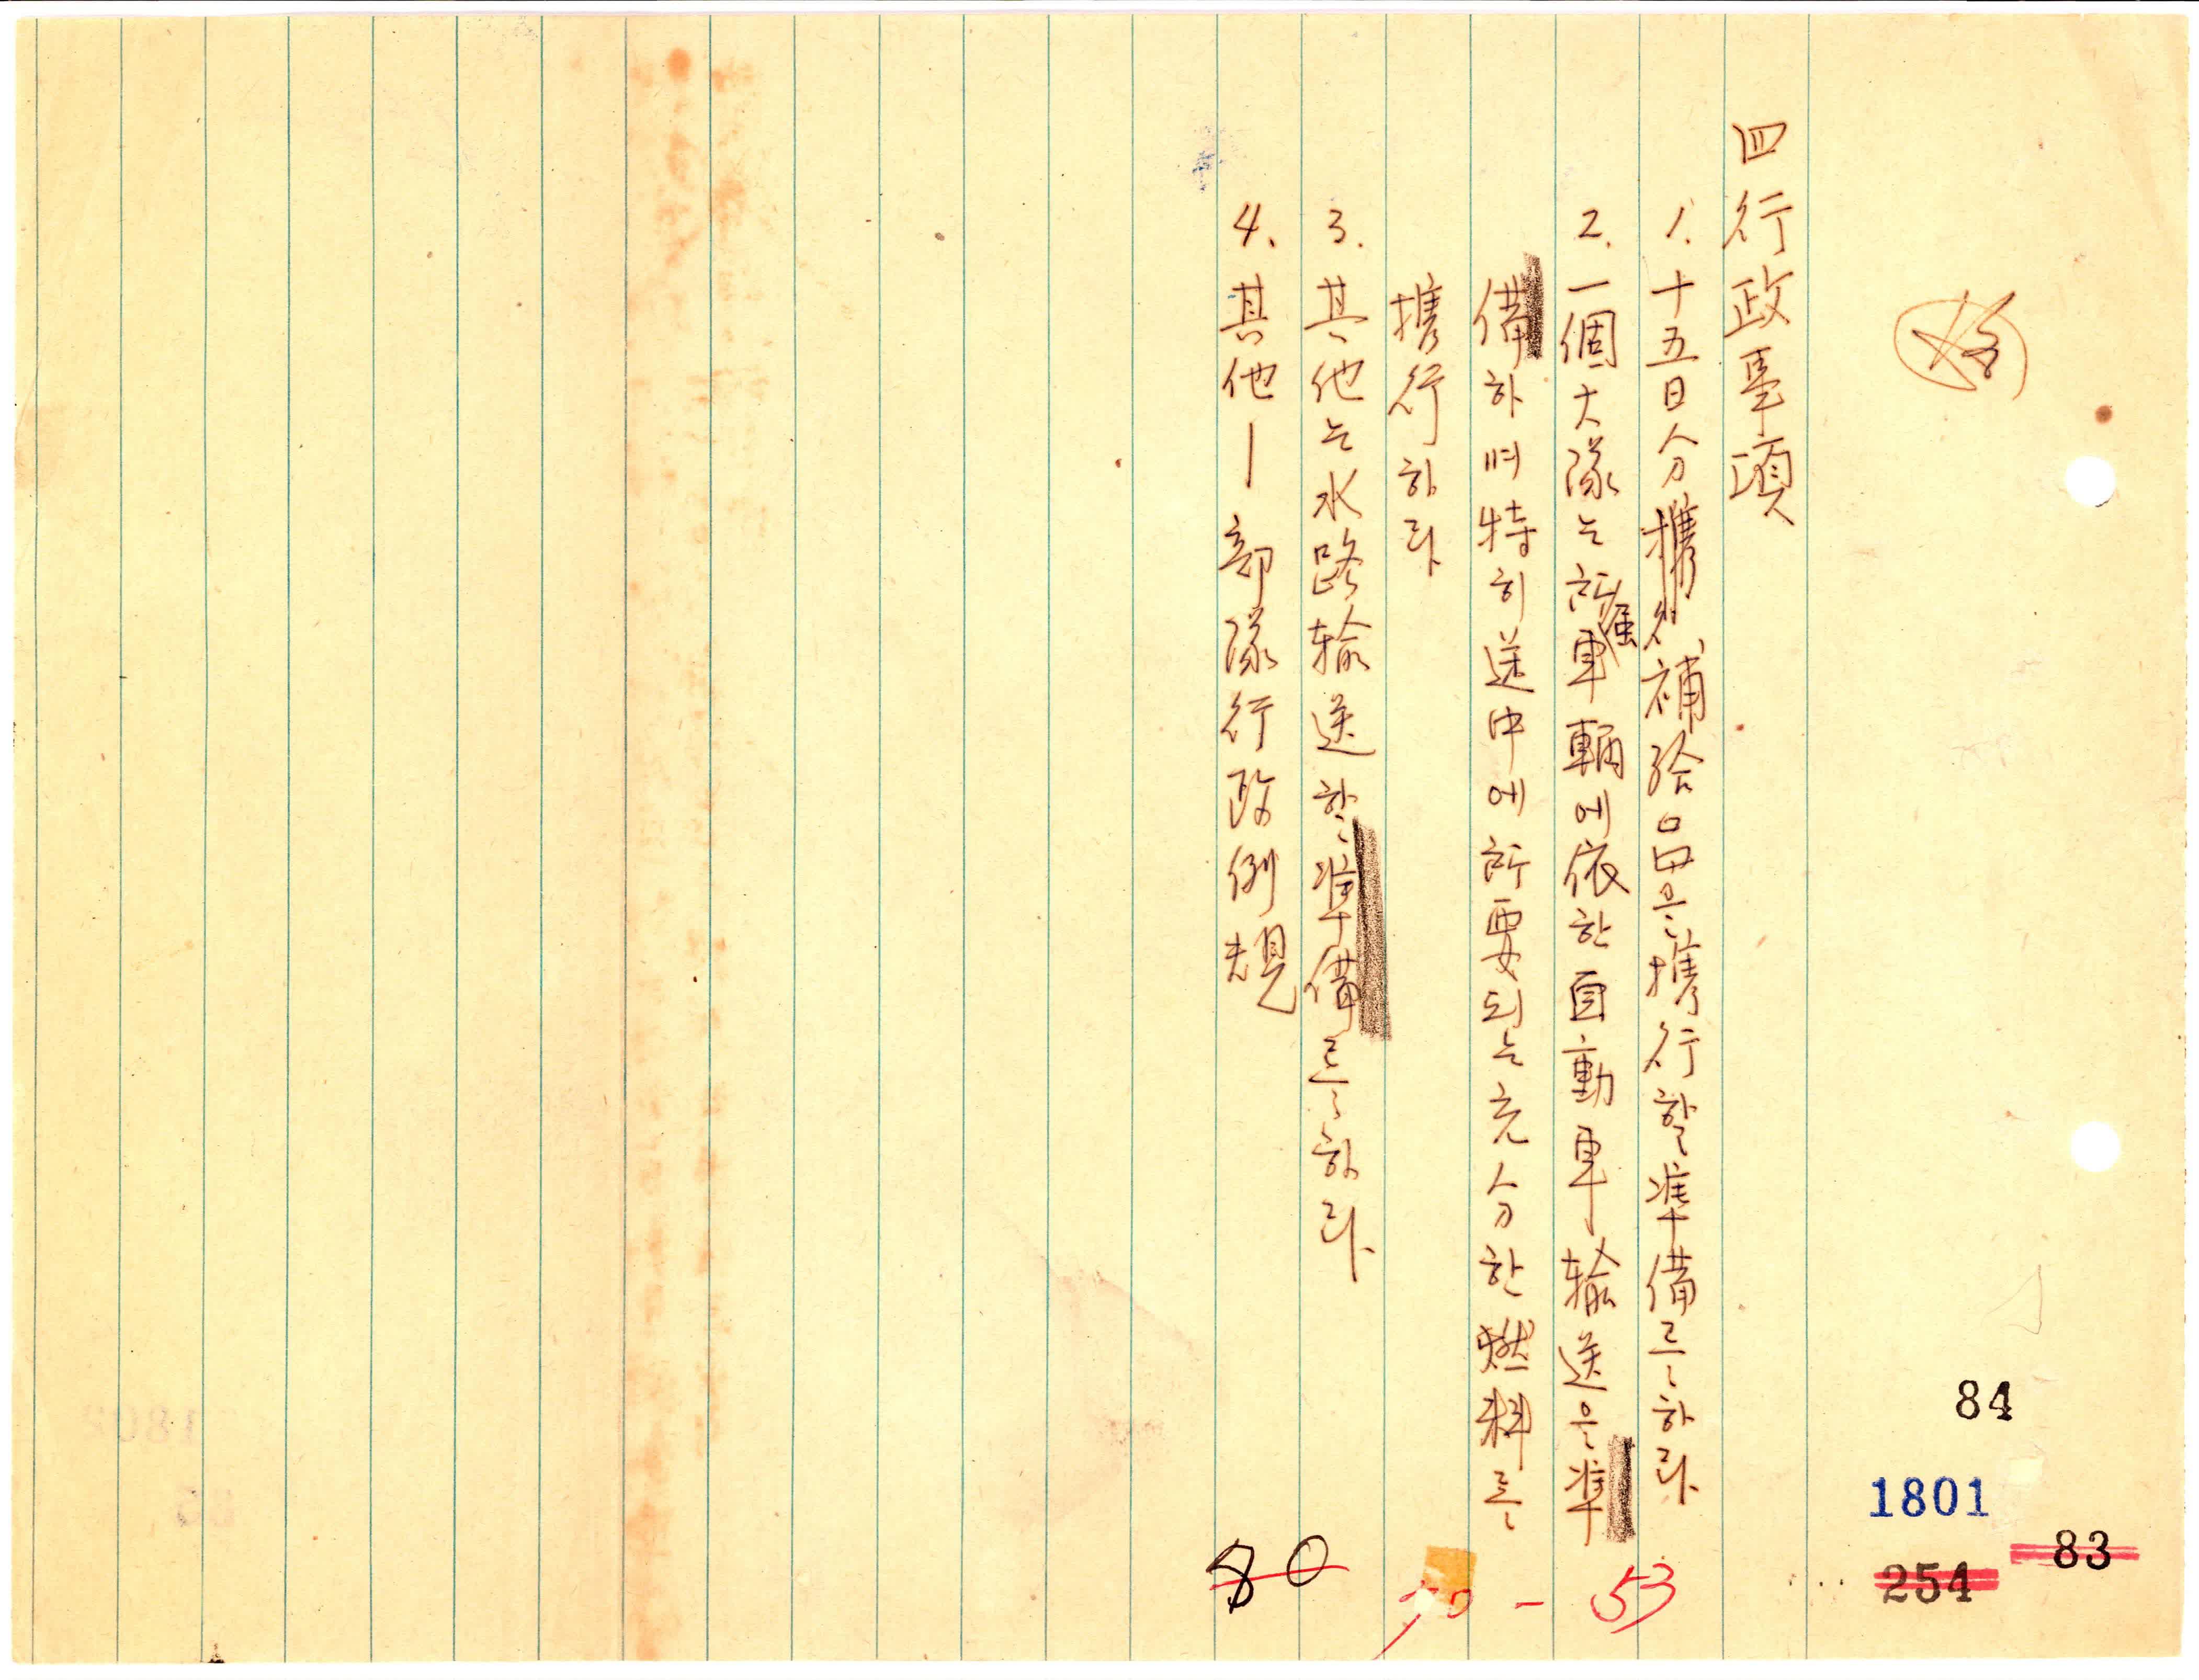 四 行政事項
1. 十五日分 補給品은 携行할 準備를 하라
2. 一個大隊는 所属車輛에 依한 自動車 輸送은 準
備하며 特히 送中에 所要되는 充分한 燃料를
携行하라
3. 其他는 水路輸送할 準備를 하라
4. 其他 — 部隊行政例規
84
1801
83
254
80
- 53